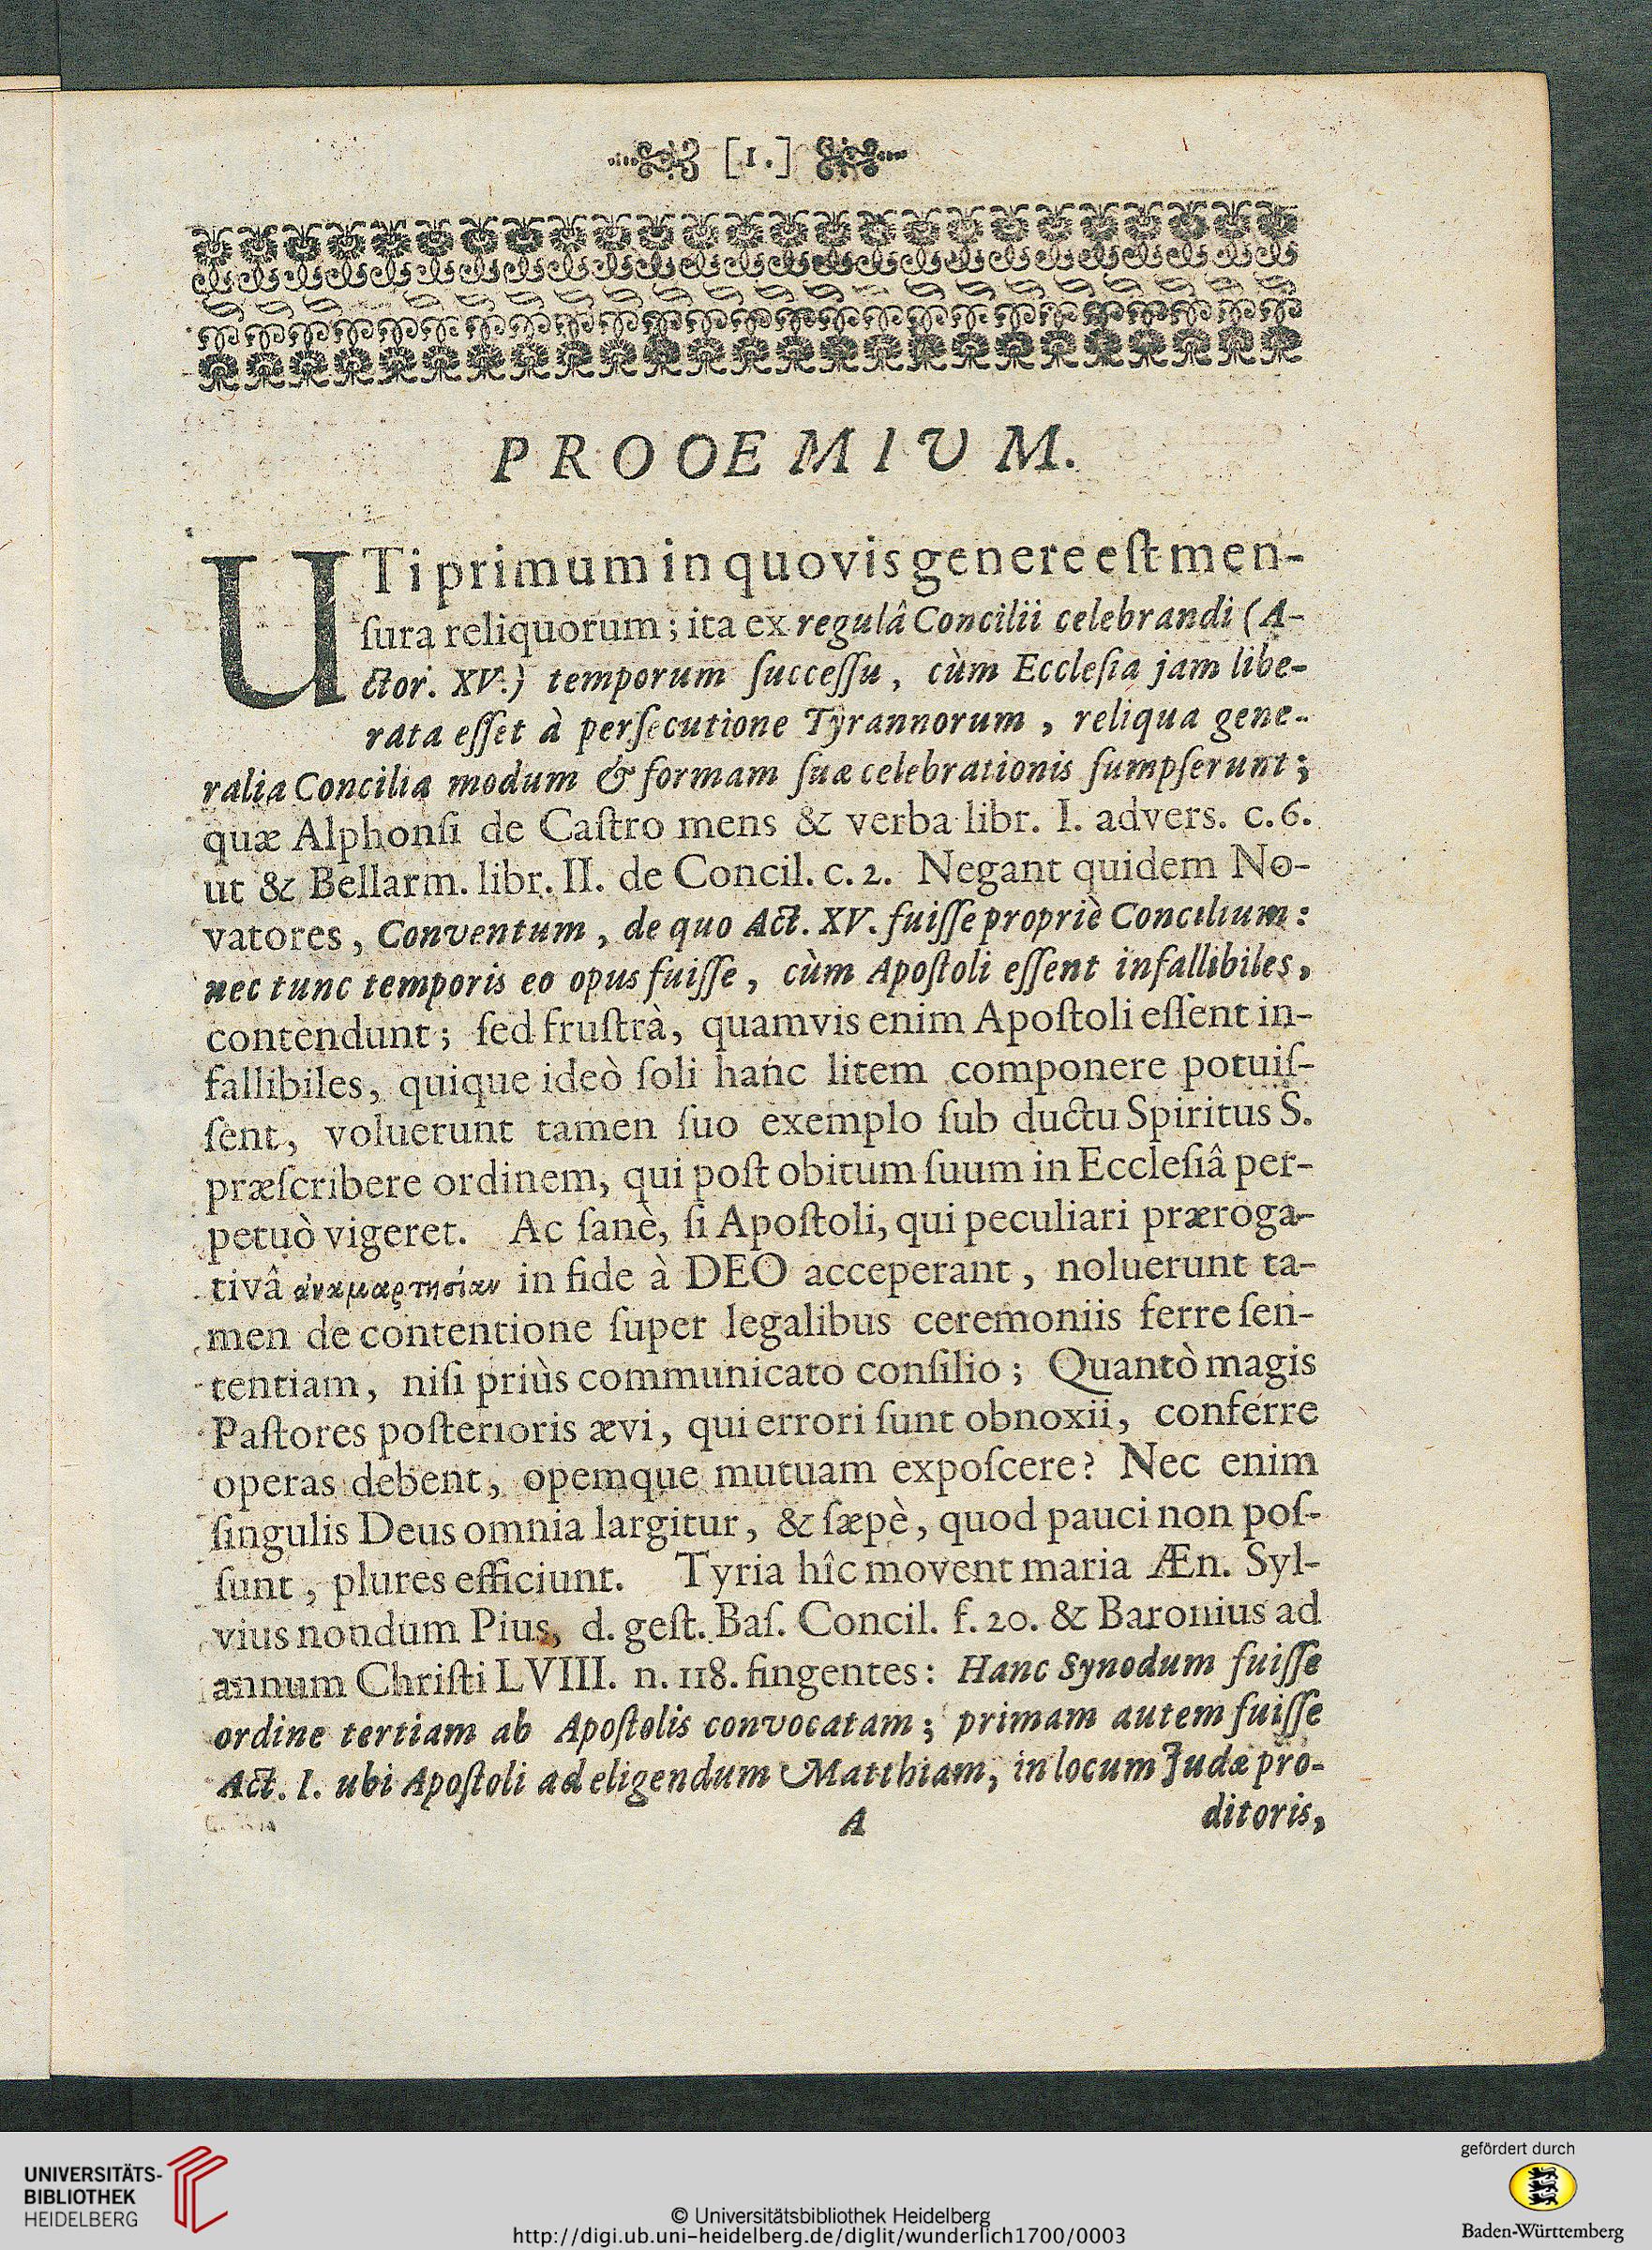 [1.]
PROOEMIUM.
UTi primum in quovis genere eſt men-
ſura reliquorum; ita ex regulâ Concilii celebrandi (A-
ctor. XV.) temporum ſucceſſu, cùm Eccleſia jam libe-
rata eſſet à perſecutione Tyrannorum, reliqua gene-
ralia Concilia modum & formam ſuæ celebrationis ſumpſerunt;
quæ Alphonſi de Caſtro mens & verba libr. I. advers. c. 6.
ut & Bellarm. libr. II. de Concil. c. 2. Negant quidem No-
vatores, Conventum, de quo Act. XV. fuiſſe propriè Concilium:
nec tunc temporis eo opus fuiſſe, cùm Apoſtoli eſſent infallibiles,
contendunt; ſed fruſtrà, quamvis enim Apoſtoli eſſent in-
fallibiles, quique ideò ſoli hanc litem componere potuiſ-
ſent, voluerunt tamen ſuo exemplo ſub ductu Spiritus S.
præſcribere ordinem, qui poſt obitum ſuum in Eccleſiâ per-
petuò vigeret. Ac ſanè, ſi Apoſtoli, qui peculiari præroga-
tivâ ἀναμαρτησίαν in fide à DEO acceperant, noluerunt ta-
men de contentione ſuper legalibus ceremoniis ferre ſen-
tentiam, niſi priùs communicato conſilio; Quantò magis
Paſtores poſterioris ævi, qui errori ſunt obnoxii, conferre
operas debent, opemque mutuam expoſcere? Nec enim
ſingulis Deus omnia largitur, & ſæpè, quod pauci non poſ-
ſunt, plures efficiunt. Tyria hîc movent maria Æn. Syl-
vius nondum Pius, d. geſt. Baſ. Concil. f. 20. & Baronius ad
annum Chriſti LVIII. n. 118. fingentes: Hanc Synodum fuiſſe
ordine tertiam ab Apoſtolis convocatam; primam autem fuiſſe
Act. I. ubi Apoſtoli ad eligendum Matthiam, in locum Judæ pro-
A ditoris,
UNIVERSITÄTS-
BIBLIOTHEK
HEIDELBERG
© Universitätsbibliothek Heidelberg
http://digi.ub.uni-heidelberg.de/diglit/wunderlich1700/0003
gefördert durch
Baden-Württemberg